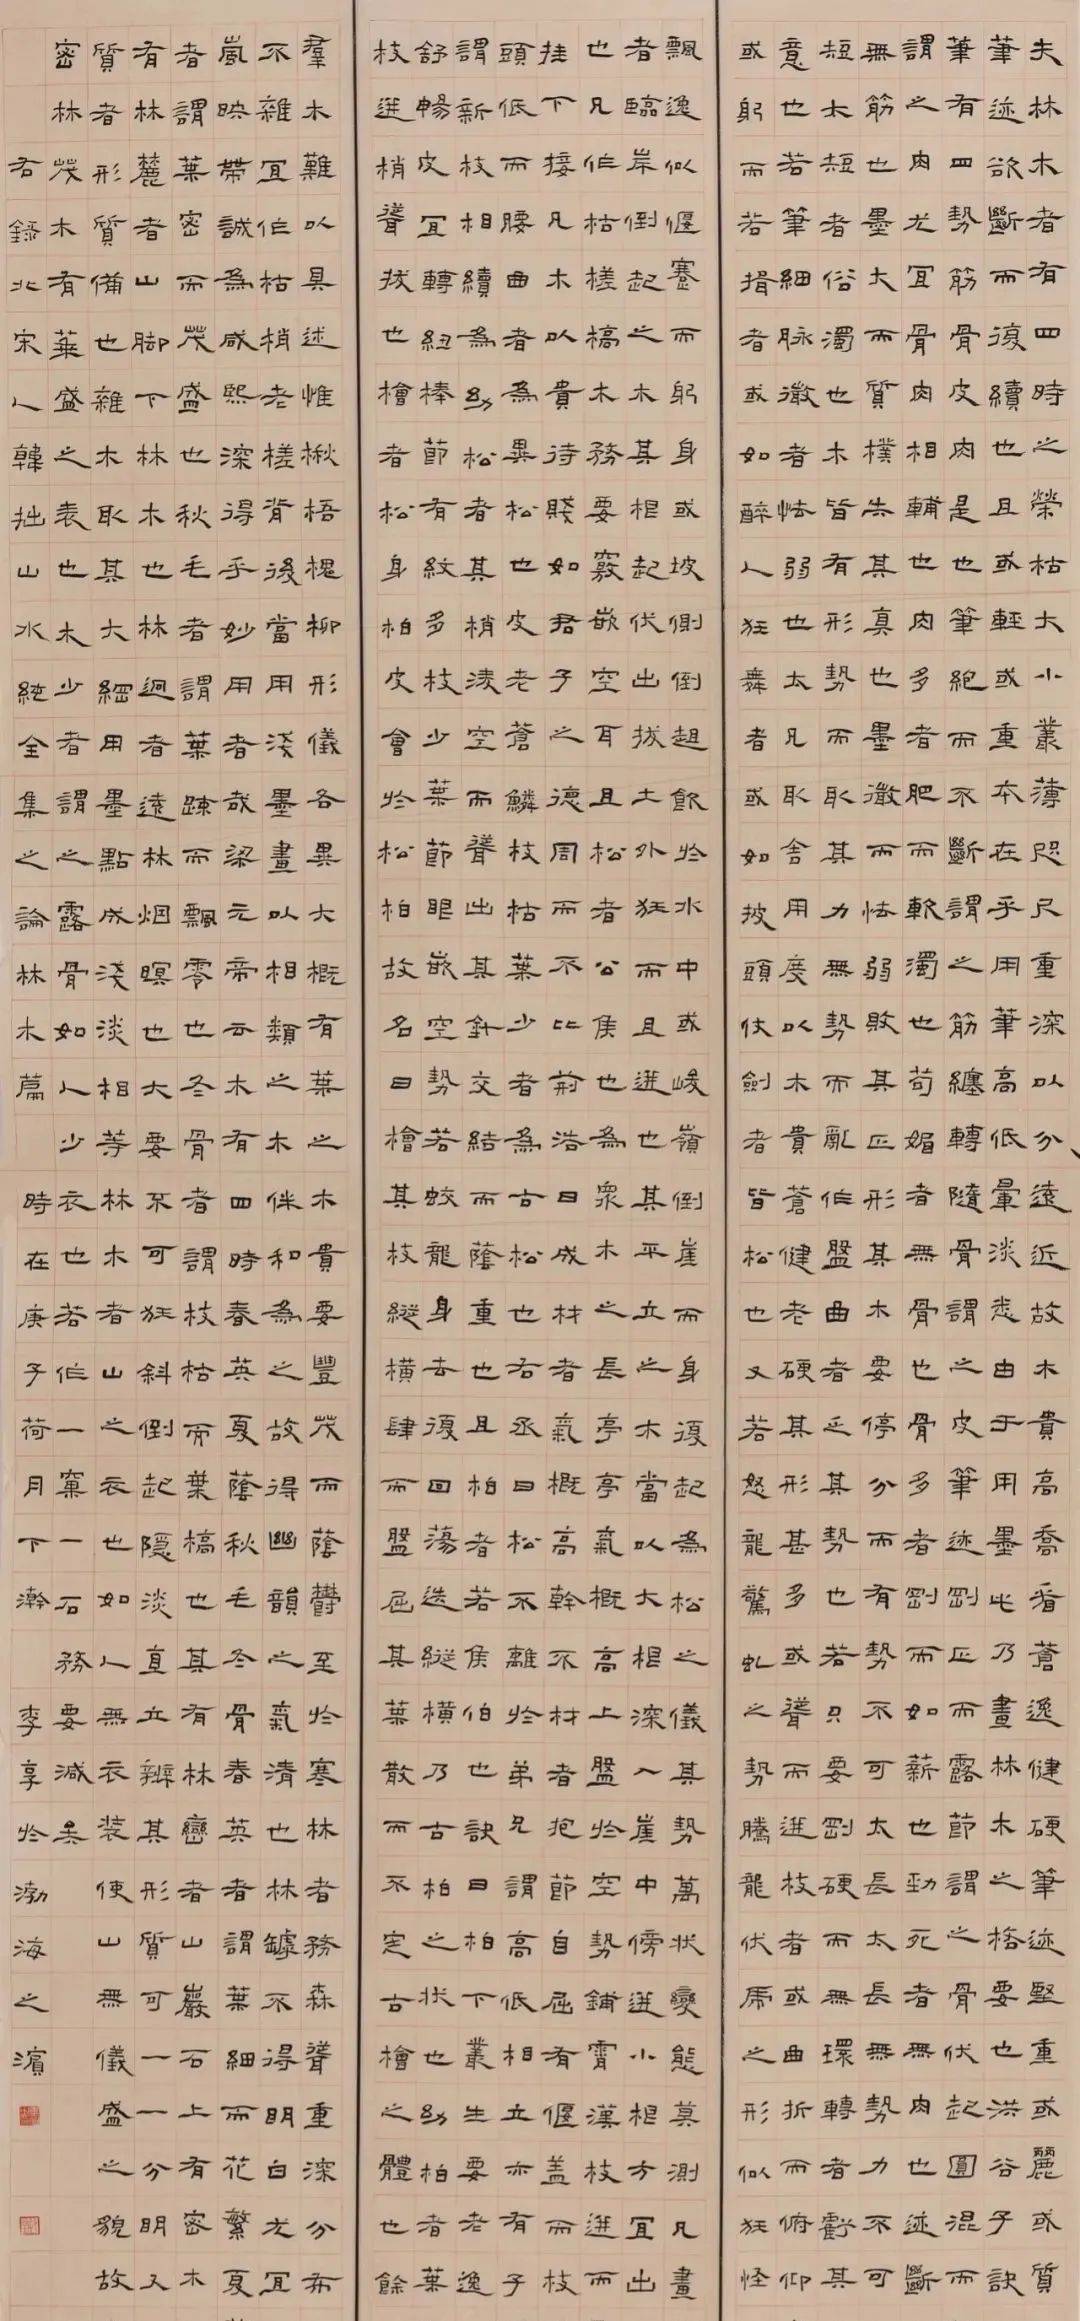 夫林木者有四時之榮枯大小叢薄咫尺重深以分遠近故木貴高喬看蒼逸健硬筆迹堅重或麗或質
筆迹欲斷而復續也且或輕或重本在乎用筆高低暈淡悉由于用墨此乃畫林木之格要也洪谷子訣
筆有四勢筋骨皮肉是也筆絕而不斷謂之筋纏轉隨骨謂之皮筆迹剛正而露節謂之骨伏起圓混而
謂之肉尤宜骨肉相輔也肉多者肥而軟濁也苟媚者無骨也骨多者剛而如薪也勁死者無肉也迹斷
無筋也墨大而質樸失其真也墨微而怯弱敗其正形其木要停分而有勢不可太長太長無勢力不可
短太短者俗濁也木皆有形勢而取其力無勢而亂作盤曲者乏其勢也若只要剛硬而無環轉者虧其
意也若筆細脉微者怯弱也太凡取舍用度以木貴蒼健老硬其形甚多或聳而逬枝者或曲折而俯仰
或躬而若揖者或如醉人狂舞者或如披頭仗劍者皆松也又若怒龍驚虬之勢騰龍伏虎之形似狂怪
飄逸似偃蹇而躬身或坡側倒趄飲於水中或峻嶺倒崖而身復起為松之儀其勢萬狀變態莫測凡畫
者臨岸倒起之木其根起伏出拔土外狂而且逬也其平立之木當以大根深入崖中傍逬小根方宜出
也凡作枯槎槁木務要竅嵌空耳且松者公侯也為衆木之長亭亭氣概高上盤於空勢鋪霄漢枝逬而
挂下接凡木以貴待賤如君子之德周而不比荊浩曰成材者氣概高幹不材者抱節自屈有偃蓋而枝
頭低而腰曲者為異松也皮老蒼鱗枝枯葉少者為古松也右丞曰松不離於弟兄謂高低相立亦有子
謂新枝相續為幼松者其梢淩空而聳出其針交結而蔭重也且柏者若侯伯也訣曰柏下叢生要老逸
舒暢皮宜轉紐捧節有紋多枝少葉節眼嵌空勢若蛟龍身去復回蕩迭縱橫乃古柏之狀也幼柏者葉
枝逬梢聳拔也檜者松身柏皮會於松柏故名曰檜其枝縱橫肆而盤屈其葉散而不定古檜之體也餘
羣木難以具述惟楸梧槐柳形儀各異大概有葉之木貴要豐茂而蔭鬱至於寒林者務森聳重深分布
不雜宜作枯梢老槎背後當用淺墨畫以相類之木伴和為之故得幽韻之氣清也林罅不得明白尤宜
嵐映帶誠為咸熙深得乎妙用者哉梁元帝云木有四時春英夏蔭秋毛冬骨春英者謂葉細而花繁夏
者謂葉密而茂盛也秋毛者謂葉疎而飄零也冬骨者謂枝枯而葉槁也其有林巒者山巖石上有密木
有林麓者山脚下林木也林迥者遠林烟暝也大要不可狂斜倒起隱淡直立辨其形質可一一分明又
質者形質備也雜木取其大綱用墨點成淺淡相等林木者山之衣也如人無衣裝使山無儀盛之貌故
密林茂木有華盛之表也木少者謂之露骨如人少衣也若作一窠一石務要減吳
右錄北宋人韓拙山水純全集之論林木篇 時在庚子荷月下澣 李享於渤海之濱